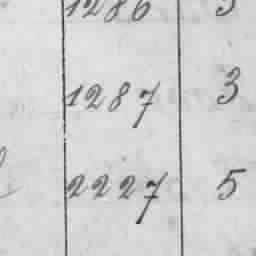 1286 3
1287 3
2227 5